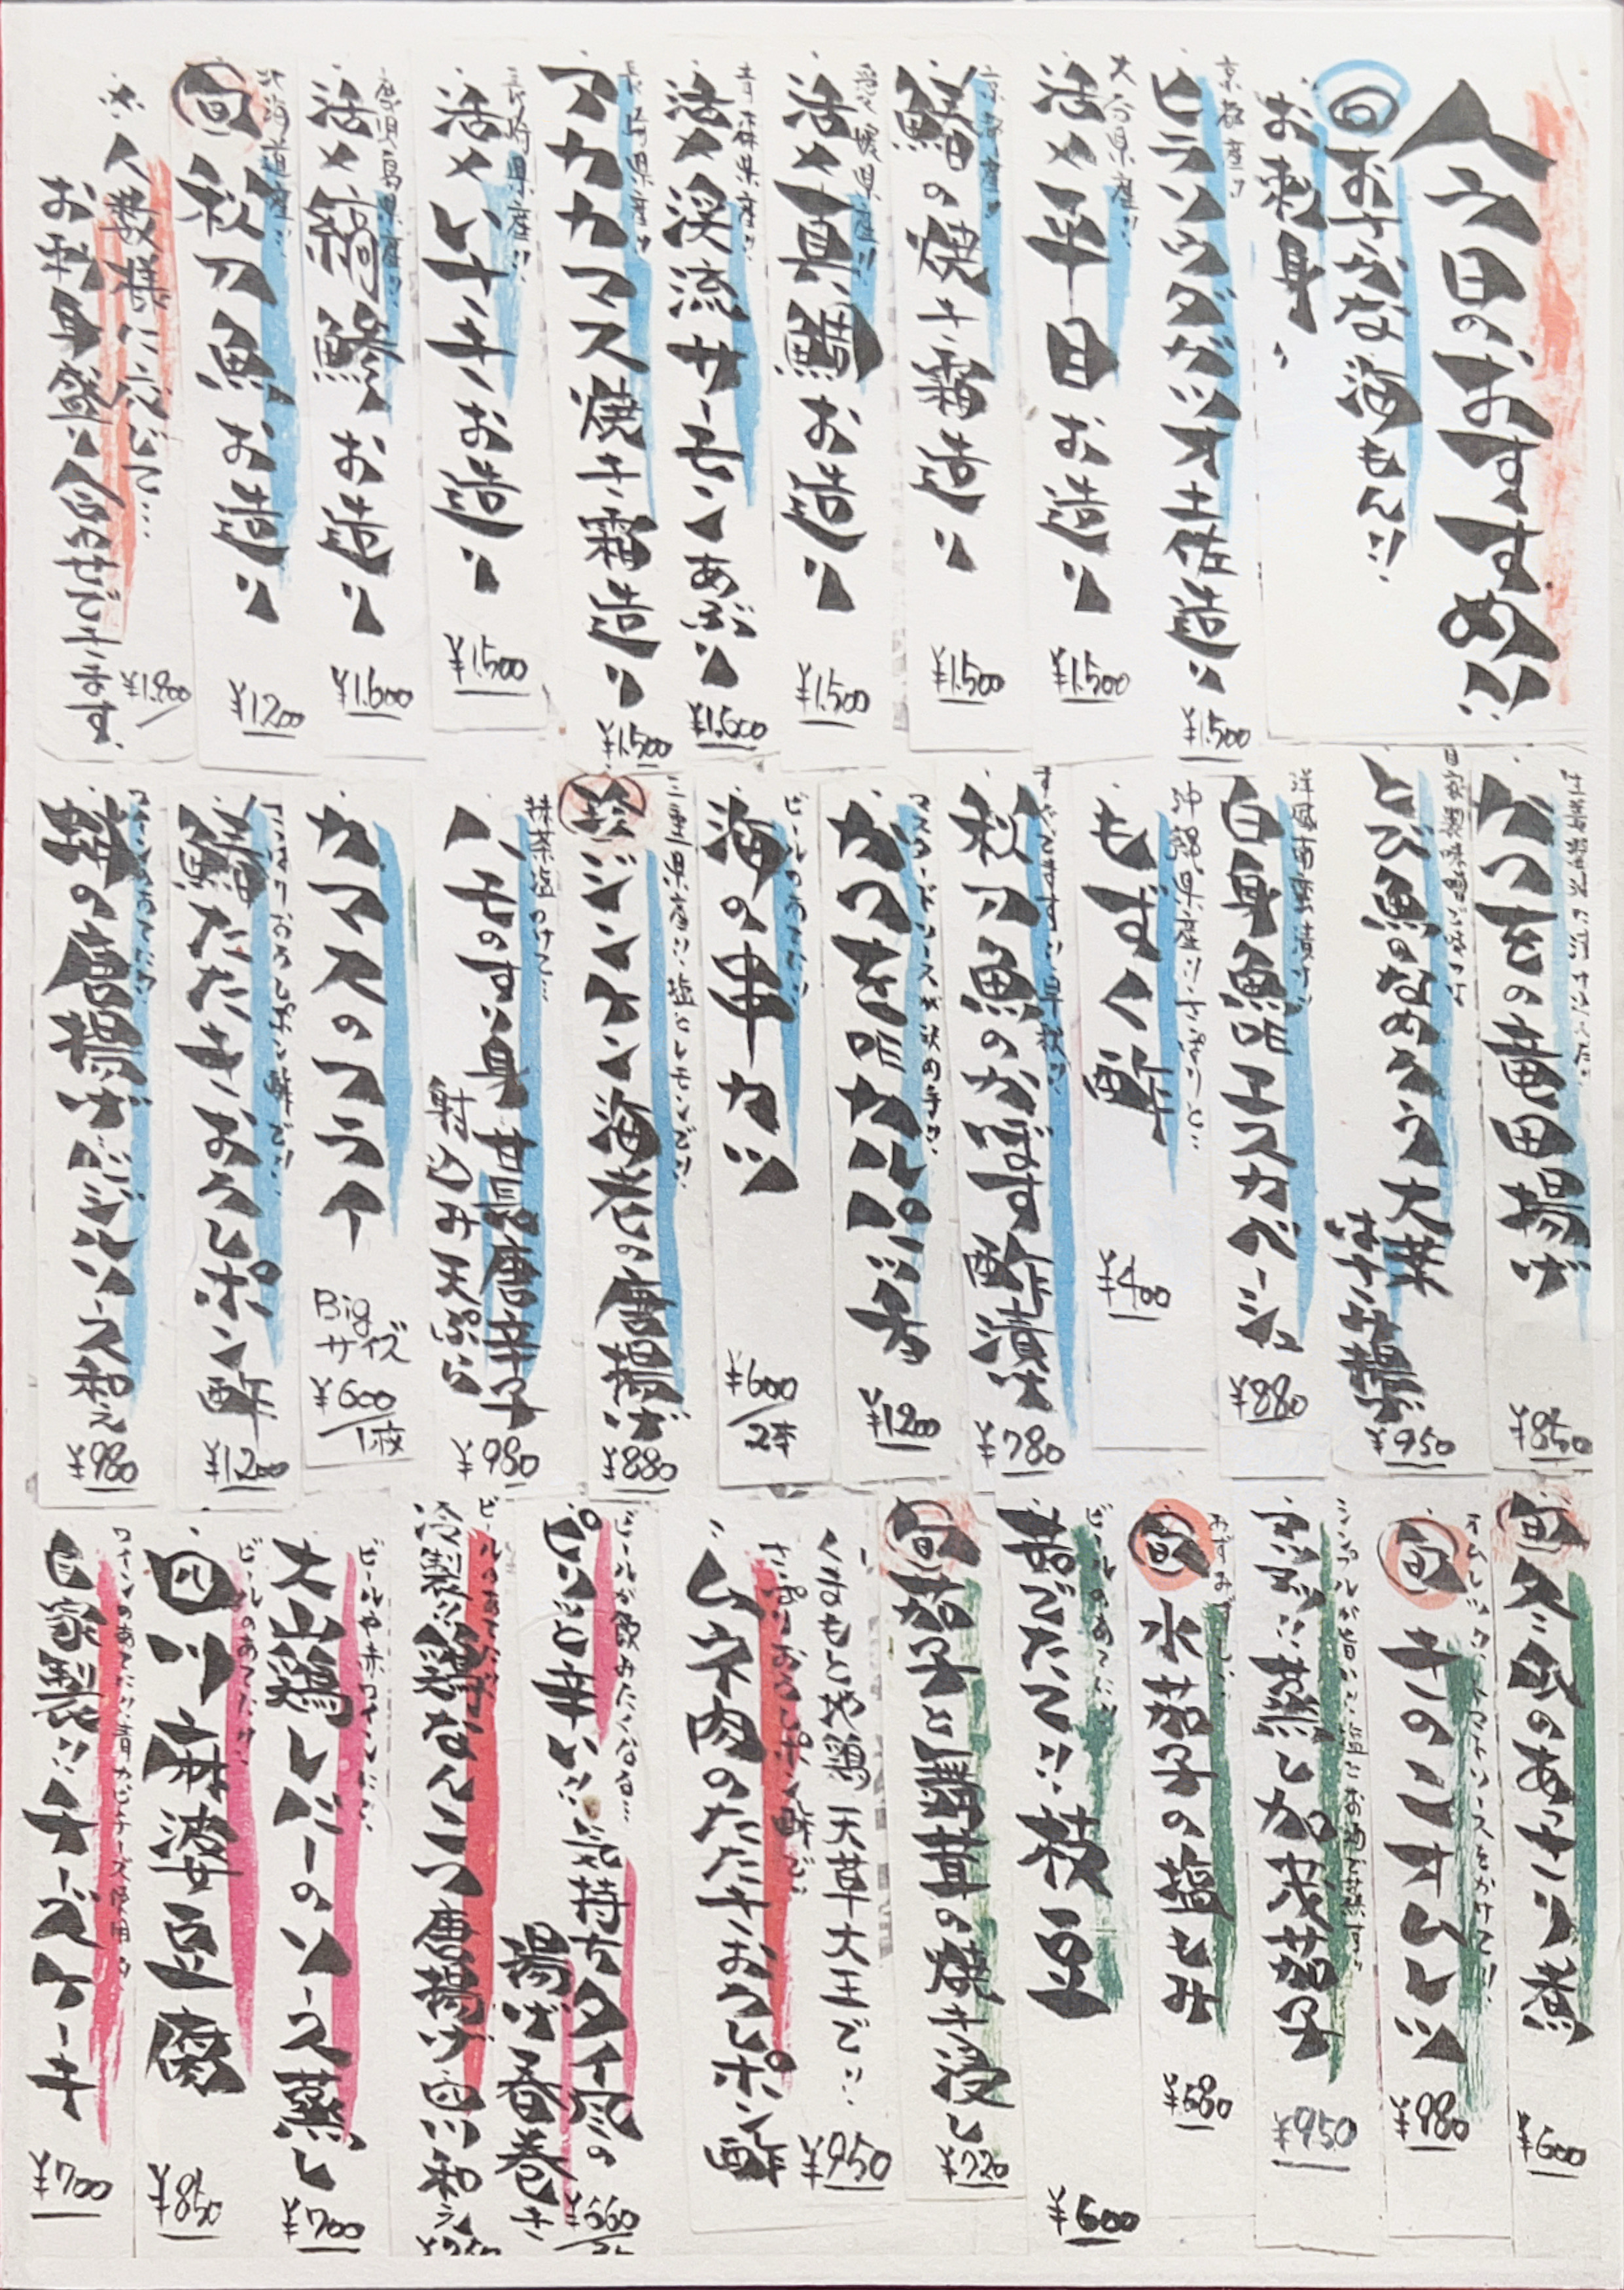 今日のおすすめ!!
旬 お方々な海もん!!
お刺身
京極産!!
ヒラソウダガツオ土佐造り ¥1.500
大分県産!!
活〆平目お造り ¥1.500
京都産!!
鰆の焼き霜造り ¥1.500
愛媛県産!!
活〆真鯛お造り ¥1.500
青森県産!!
活〆渓流サーモンあぶり ¥1.600
長崎県産!!
アカカマス焼き霜造り ¥1.500
長崎県産!!
活〆いサキお造り ¥1.500
鹿児島県産!!
活〆縞鯵お造り ¥1.600
北海道産!!
旬 秋刀魚お造り ¥1200
※人数様に応じて…
お刺身盛り合わせできます ¥1.800
生姜醤油に漬け込んだ
かつをの竜田揚げ ¥850
とび魚のなめろう大葉はさみ揚げ ¥950
洋風南蛮漬け!!
白身魚のエスカベーシュ ¥880
沖縄県産!!さっぱりと…
もずく酢 ¥400
秋刀魚のかぼす酢漬け ¥780
マスタードソースが決め手!!
かつをのカルパッチョ ¥1200
ビールのあてに!!
海の串カツ ¥600/2本
三重県産!!塩とレモンで!!
珍 ジンケン海老の唐揚げ ¥880
抹茶塩つけて…
ハモのすり身甘長唐辛子射込み天ぷら ¥980
カマスのフライ Bigサイズ ¥600/1枚
たっぷりおろしポン酢で!!
鰯たたきおろしポン酢 ¥1200
ワインのあてに!!
鱗の唐揚げバジルソース和え ¥980
旬 冬瓜のあっさり煮 ¥600
オムレツに トマトソースをかけて!!
旬 きのこオムレツ ¥980
シンプルが旨い!!
京都!!蒸し加茂茄子 ¥950
おすすめ!!
旬 水茄子の塩もみ ¥680
ビールのあてに!!
茹でたて!!枝豆 ¥600
旬 茄子と万願寺の焼き浸し ¥720
くまもと地鶏 天草大王で!!
たっぷりおろしポン酢で
ムネ肉のたたきおろしポン酢 ¥950
ビールが飲みたくなる…
ピリッと辛い!!気持ちタイ風の揚げ春巻き ¥660
ビールのあてに!!
燻製!!鶏なんこつ唐揚げ四川和え
ビールや赤ワインに!!
大山鶏レバーのソース蒸し ¥700
ビールのあてに!!
四川麻婆豆腐 ¥850
ワインのあてに!!青かびチーズ使用!!
自家製!!チーズケーキ ¥700